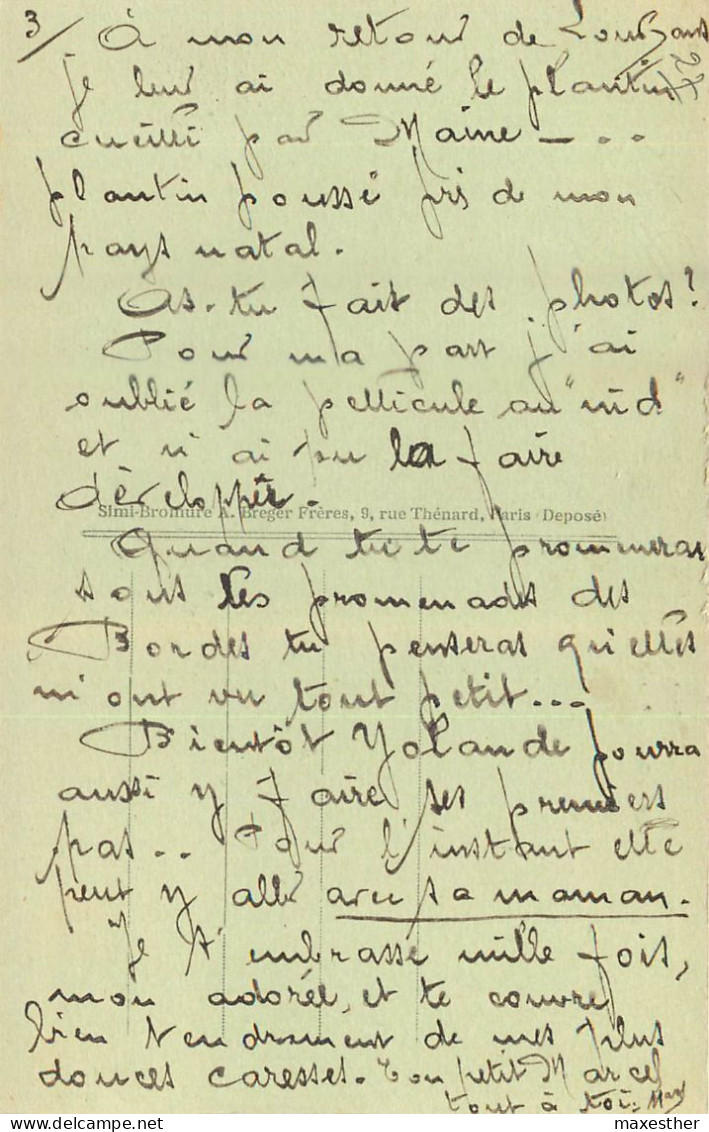 3/ À mon retour de
je leur ai donné le plantin
cueilli par Maine — ...
plantin poussé près de mon
pays natal.
As-tu fait des photos?
Pour ma part j'ai
oublié la pellicule au "nid"
et n'ai pu la faire
développer.
Simi-Bromure A. Breger Frères, 9, rue Thénard, Paris (Deposé)
Quand tu te promèneras
sous les promenades des
Bordes tu penseras qu'elles
m'ont vu tout petit...
Bientôt Yolande pourra
aussi y faire ses premiers
pas.. Pour l'instant elle
peut y aller avec sa maman.
Je t'embrasse mille fois,
mon adorée, et te couvre
bien tendrement de mes plus
douces caresses. Ton petit Marcel
tout à toi.
maxesther